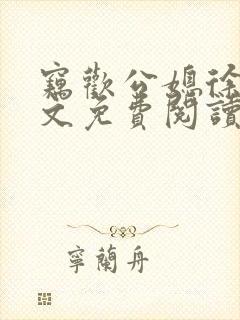 竊歡公媳徐
文免費閱讀
寧蘭舟